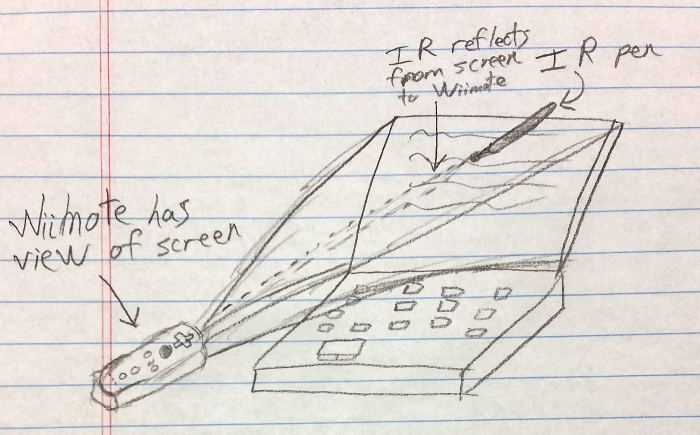 IR reflects
from screen
to Wiimote
IR pen
Wiimote has
view of screen